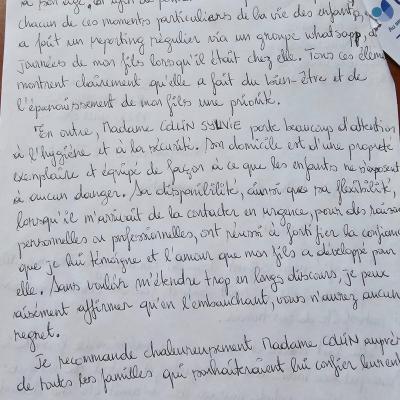 chacun de ces moments particuliers de la vie des enfants,
a fait un reporting régulier via un groupe whatsapp, de
journées de mon fils lorsqu'il était chez elle. Tous ces élém
montrent clairement qu'elle a fait du bien-être et de
l'épanouissement de mon fils une priorité.
En outre, Madame COLIN SYLVIE porte beaucoup d'attention
à l'hygiène et à la sécurité. Son domicile est d'une propreté
exemplaire et équipé de façon à ce que les enfants ne s'exposent
à aucun danger. Sa disponibilité, ainsi que sa flexibilité,
lorsqu'il m'arrivait de la contacter en urgence, pour des raisons
personnelles ou professionnelles, ont réussi à fortifier la confiance
que je lui témoigne et l'amour que mon fils a développé pour
elle. Sans vouloir m'étendre trop en longs discours, je peux
aisément affirmer qu'en l'embauchant, vous n'aurez aucun
regret.
Je recommande chaleureusement Madame COLIN auprès
de toutes les familles qui souhaiteraient lui confier leur enf